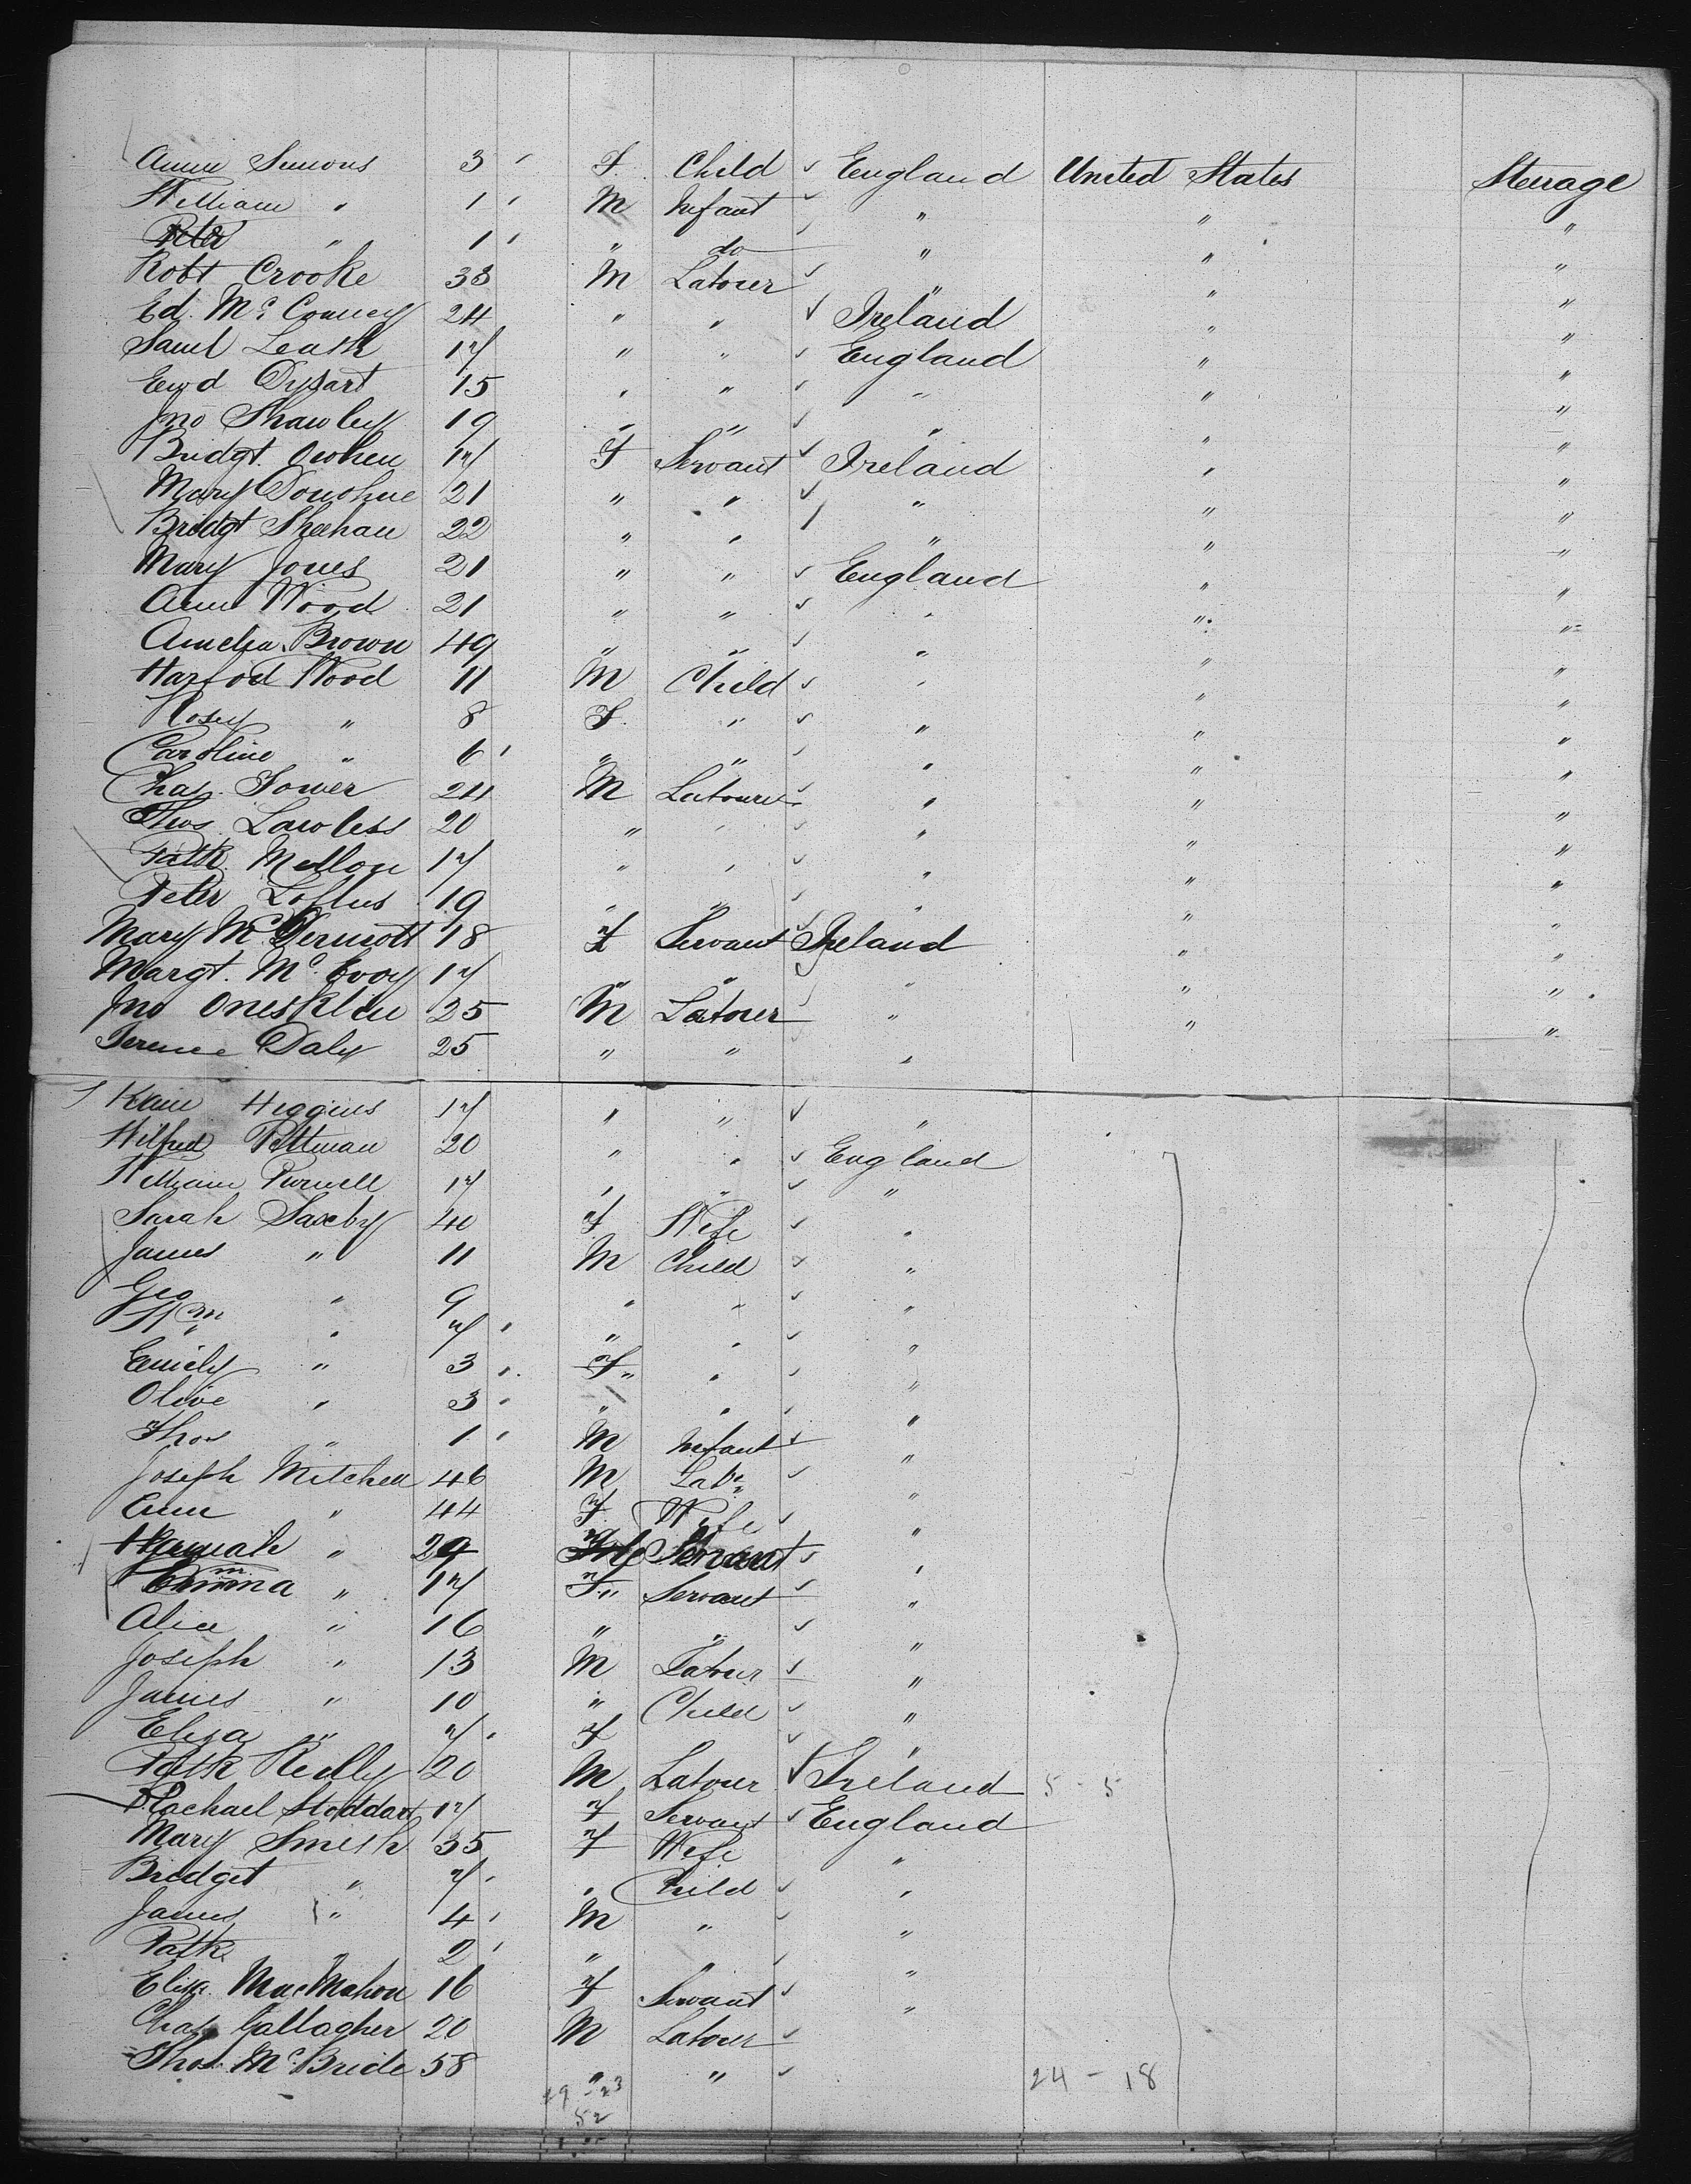 Annie Simons 3 ' F. Child ✓ England United States Sterrage
William " 1 ' M Infant ✓ " " "
Peter " 1 ' " do ✓ " " "
Robt Crooke 33 M Labourer ✓ " " "
Ed. Mc. Conney 24 " " ✓ Ireland " "
Saml Leath 17 " " ✓ England " "
Ewd Dysart 15 " " ✓ " " "
Jno Shawley 19 " " ✓ " " "
Bridgt. 17 F Servant ✓ Ireland " "
Mary Donohue 21 " " ✓ " " "
Bridgt Sheehan 22 " " ✓ " " "
Mary Jones 21 " " ✓ England " "
Ann Wood 21 " " ✓ " " "
Amelia Brown 49 " " ✓ " " "
Harford Wood 11 M Child ✓ " " "
Rosey " 8 F. " ✓ " " "
Caroline " 6 ' " " ✓ " " "
Chas. Tower 24 M Labourer ✓ " " "
Thos Lawless 20 " " ✓ " " "
Patk. Mellon 17 " " ✓ " " "
Peter Loftus 19 " " ✓ " " "
Mary Mc Dermott 18 F Servant ✓ Ireland " "
Margt. Mc. Evoy 17 " " ✓ " " "
Jno 25 M Labourer ✓ " " "
Terence Daly 25 " " " " "
Higgins 17 " " ✓ "
Wilfred Pittman 20 " " ✓ England
William Purnell 17 " " ✓ "
Sarah Saxeby 40 F Wife ✓ "
James " 11 M Child ✓ "
Geo " 9 " " ✓ "
Wm " 7 ' " " ✓ "
Emily " 3 ' F " ✓ "
Olive " 3 ' " " ✓ "
Thos " 1 ' M Infant ✓ "
Joseph Mitchell 46 M Labr ✓ "
Ann " 44 F Wife ✓ "
Hannah " 29 F Servant ✓ "
Emma " 17 F " Servant ✓ "
Alice " 16 " " ✓ "
Joseph " 13 M Labour ✓ "
James " 10 " Child ✓ "
Eliza " 7 ' F ✓ "
Patk Reilly 20 M Labourer ✓ Ireland 5 - 5
Rachael Stoddart 17 F Servant ✓ England
Mary Smith 35 F Wife "
Bridget " 7 ' " Child ✓ "
James " 4 ' M " ✓ "
Patk " 2 ' " " ✓ "
Eliza. MacMahon 16 F Servant ✓ "
Chas Gallagher 20 M Labourer ✓
Thos. Mc. Bride 58 " " ✓ 24 - 18
29 - 23
52